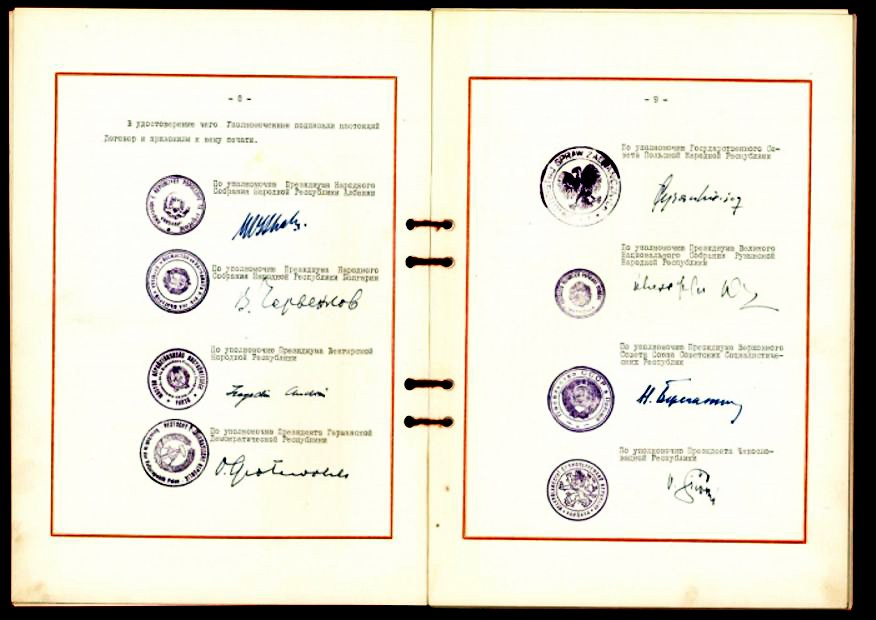 - 8 -
В удостоверение чего Уполномоченные подписали настоящий
Договор и приложили к нему печати.
По уполномочию Президиума Народного
Собрания Народной Республики Албании
По уполномочию Президиума Народного
Собрания Народной Республики Болгарии
В. Червенков
По уполномочию Президиума Венгерской
Народной Республики
Hegedüs András
По уполномочию Президента Германской
Демократической Республики
O. Grotewohl
- 9 -
По уполномочию Государственного Со-
вета Польской Народной Республики
По уполномочию Президиума Великого
Национального Собрания Румынской
Народной Республики
По уполномочию Президиума Верховного
Совета Союза Советских Социалистиче-
ских Республик
СССР
Н. Булганин
По уполномочию Президента Чехосло-
вацкой Республики